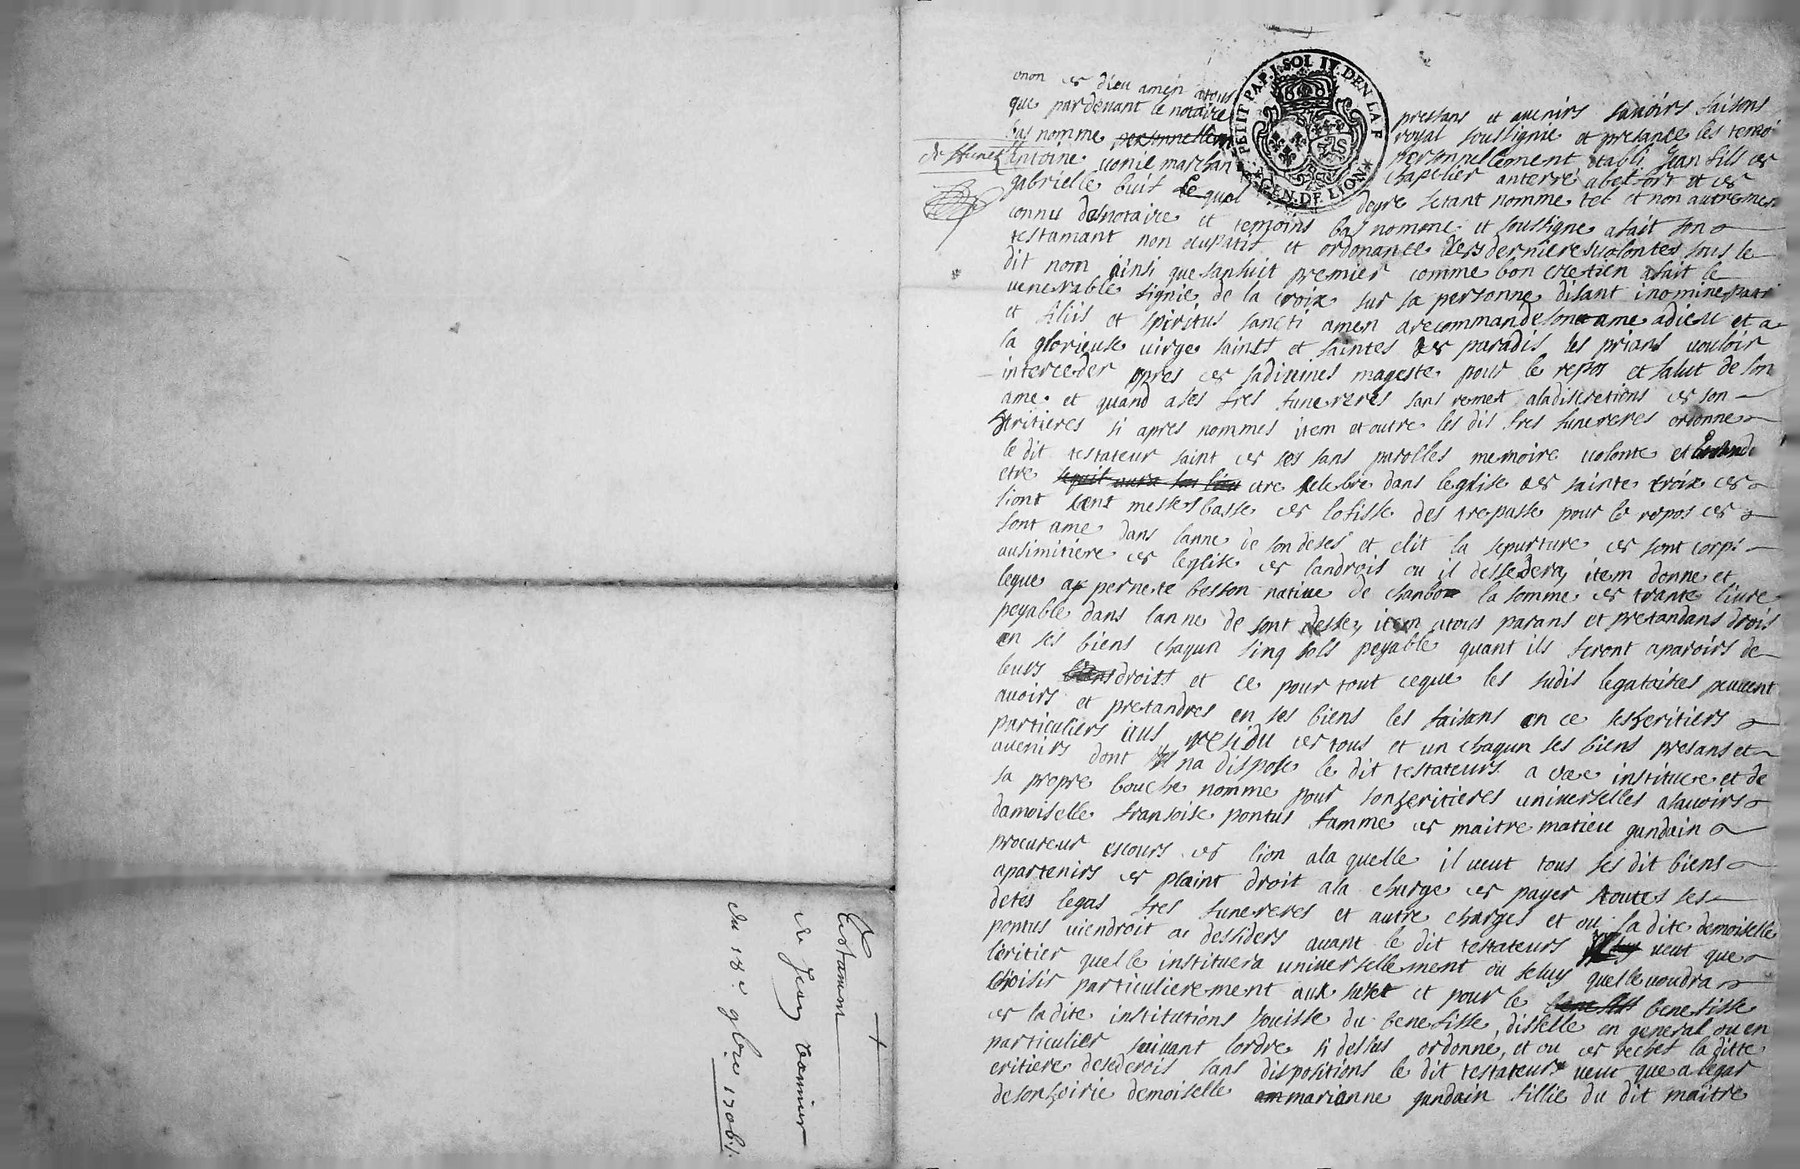 Testamant
de Jean
du 18e 9bre 1706
PETIT PA.P.1.SOL II.DEN LA F
GEN.DE LION
dieu amen atous presans et avenirs savoirs faisons
que pardevant le notaire royal soussignie et presance les temoi
bas nomme personnellement etabli Jean fils de
antoine marchan chapelier
gabrielle buis Lequel setant nomme tel et non autremen
connu dunotaire et temoins bas nomme et soussigne afait son
testamant non et ordonance des dernieres volontes sous le
dit nom ainsi quesansuit premier comme bon cretien afait le
venerable signie de la croix sur sa personne disant inomine patri
et filiis et spiritus sancti amen arecommande son ame adieu et a
la glorieuse virge saints et saintes de paradis les priant vouloir
interceder opres de sadivines mageste pour le repos et salut de son
ame et quand ases fres funereres sans remet aladiscretions de son
eritieres si apres nommes item et outre les dis fres funereres ordonne
le dit testateur saint de ses sans parolles memoire volonte et
etre etre selebre dans leglise de sainte croix de
liont cent messes basse de lofisse des trepasse pour le repos de
sont ame dans lanne de son deses et elit sa sepurture de sont corps
ausimitiere de leglise de landrois ou il dessedera item donne et
legue a pernete besson native de chanbon la somme de trante livre
peyable dans lanne de sont desse item atous parans et pretandans drois
en ses biens chaqun sinq sols peyable quant ils seront aparoirs de
leurs droits et ce pour tout ceque les sudis legataires peuvent
avoirs et pretandres en ses biens les faisans en ce ses heritiers
particuliers aus residu de tous et un chaqun ses biens presans et
avenirs dont na dispose le dit testateurs a cree institue et de
sa propre bouche nomme pour son heritieres universelles asavoirs
damoiselle fransoise pontus famme de maitre matieu gandain
procureur escours de lion ala quelle il veut tous ses dit biens
apartenirs de plaint droit ala charge de payer toutes ses
detes legas fres funereres et autre charges et ou la dite demoiselle
pontus viendroit a dessiders avant le dit testateurs veut que
leritier quelle instituera universellement ou seluy quelle voudra
choisir particulierement aux suset et pour le benefisse
de ladite institutions jouisse du benefisse disselle en general ou en
particulier suivant lordre si dessus ordonne, et ou de reches la ditte
eritiere desederois sans dispositions le dit testateur veut que a legar
de son hoirie demoiselle marianne gandain fillie du dit maitre